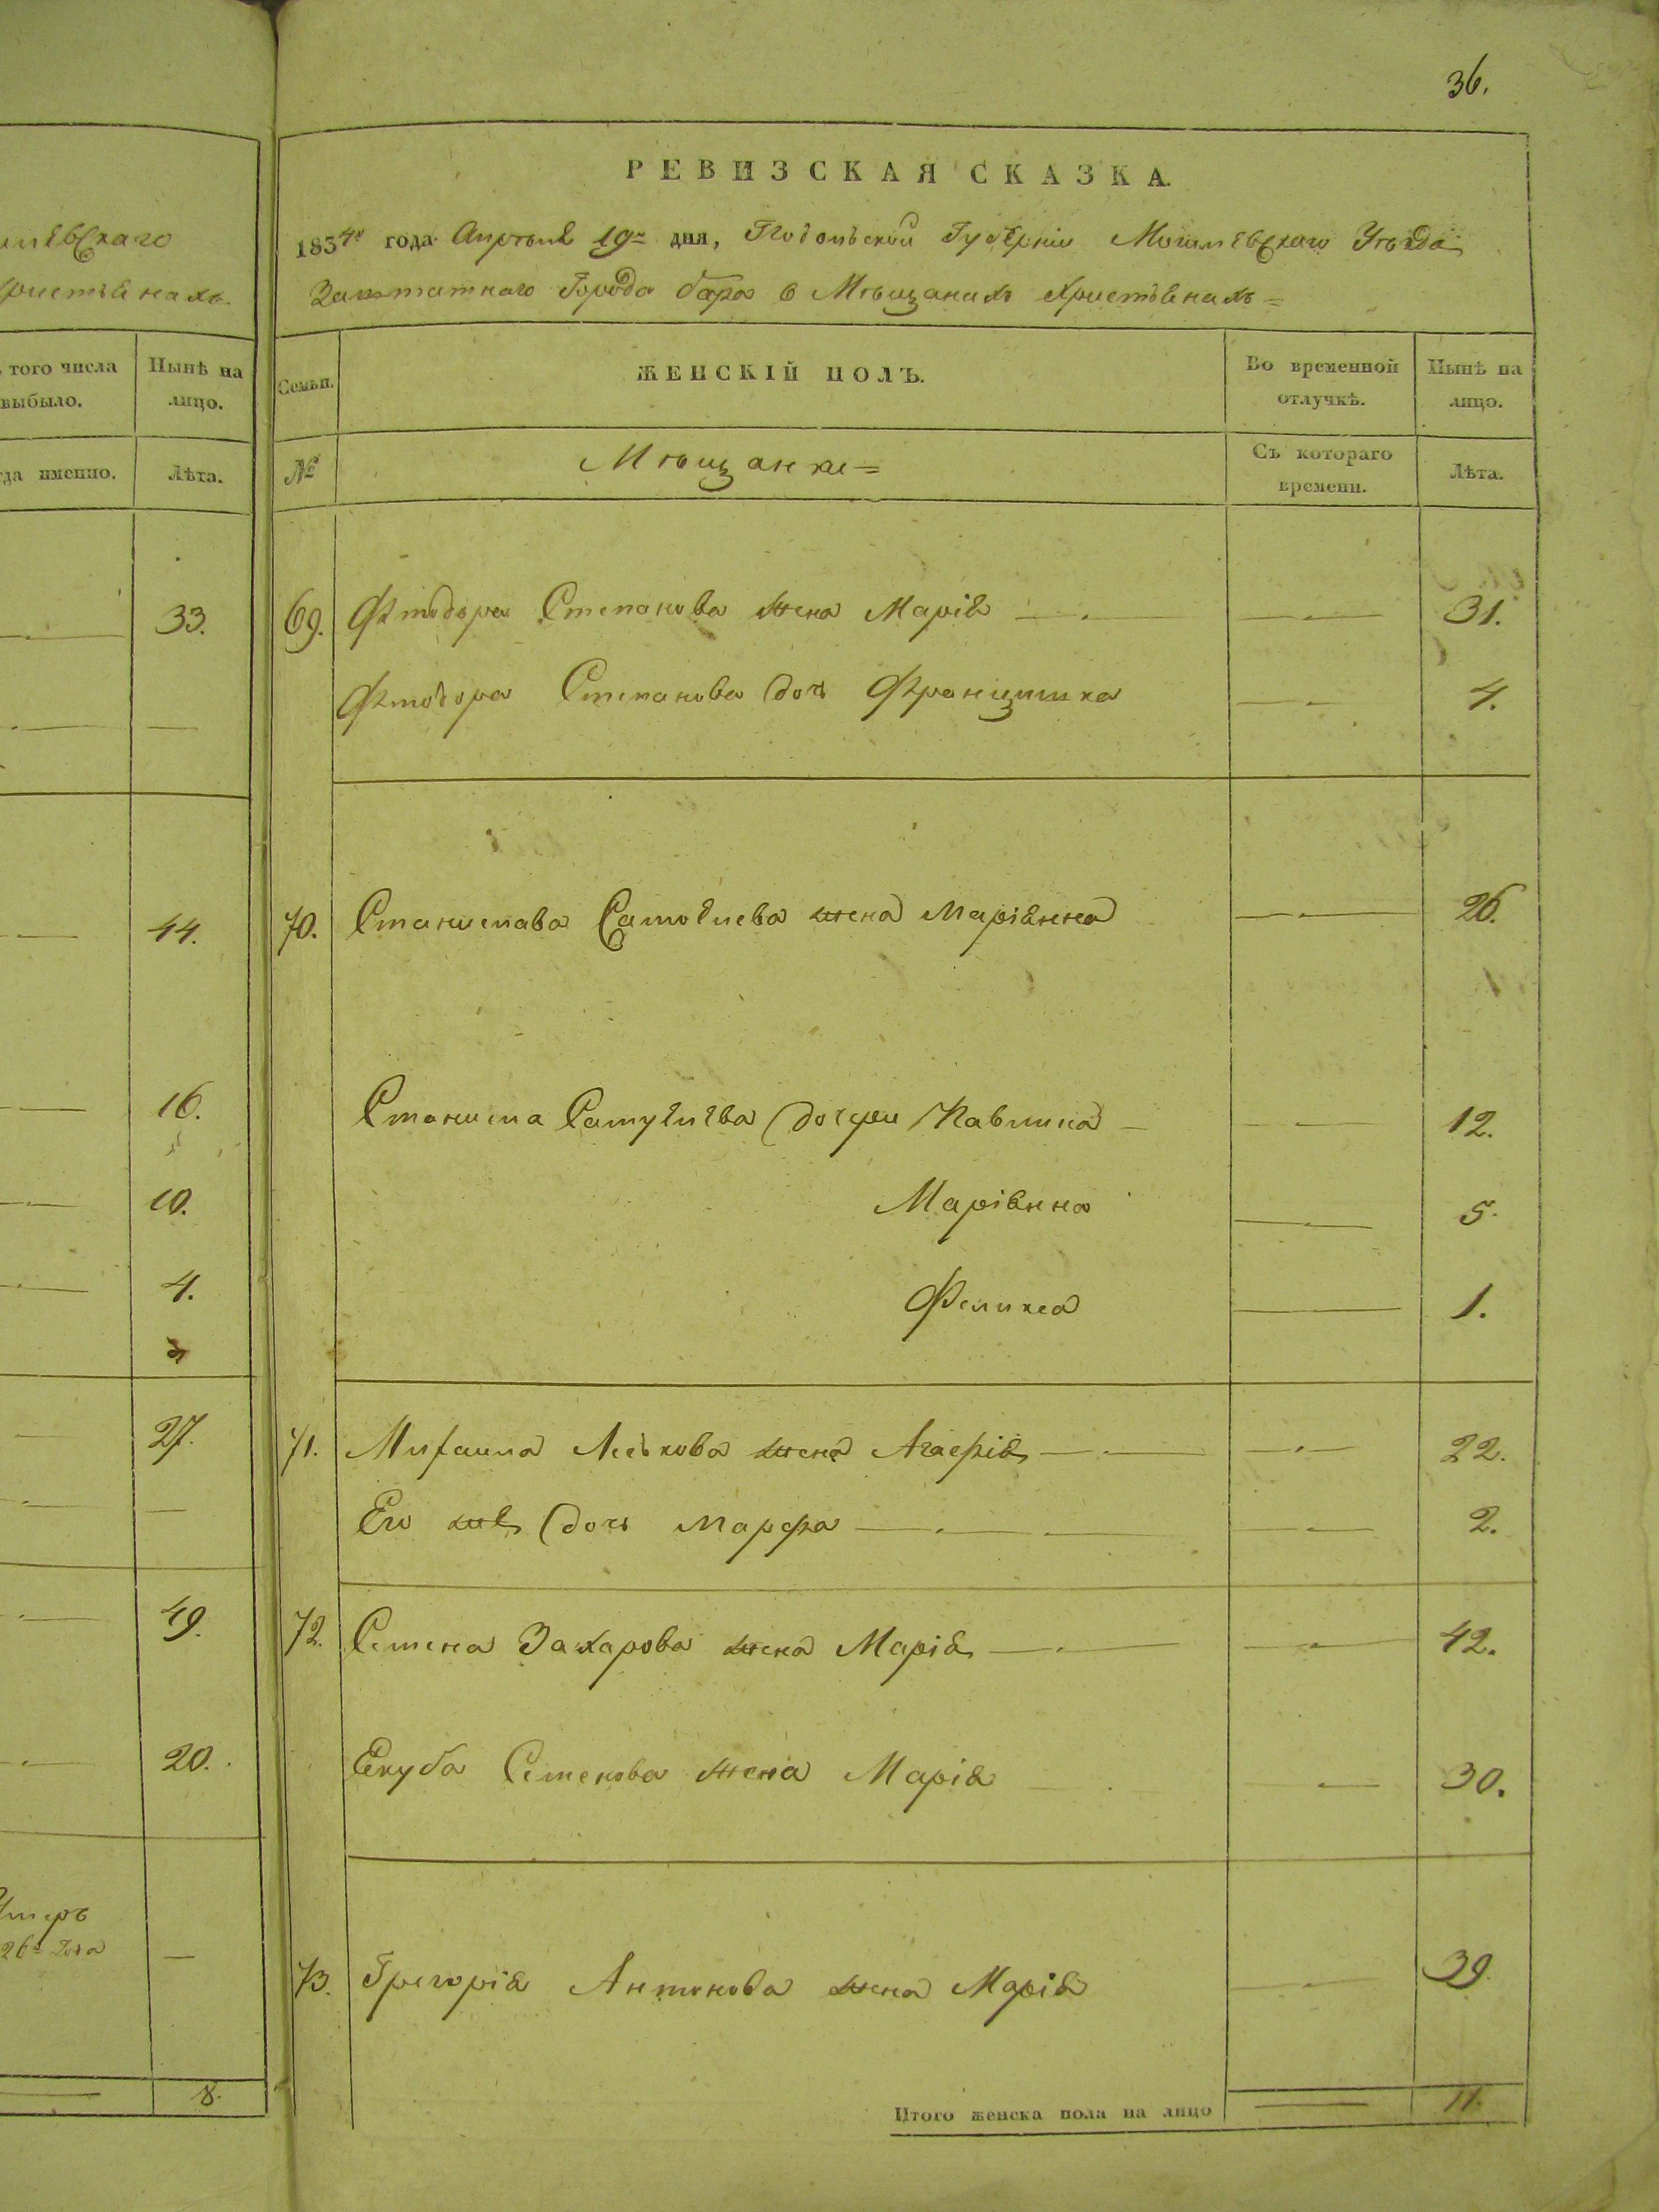 36.
РЕВИЗСКАЯ СКАЗКА.
1834го года Апрѣля 19го дня, Подольской Губерніи Могилевскаго Уѣзда
Заштатнаго Города бара в Мѣщанахъ Христіянахъ =
левскаго
Христіянахъ.
того числа выбыло.
Нынѣ на лицо.
гда именно.
Лѣта.
Семьи.
ЖЕНСКІЙ ПОЛЪ.
Во временной отлучкѣ.
Нынѣ на лицо.
№
Мѣщанки =
Съ котораго времени.
Лѣта.
33.
69. Степанова жена Марія 31.
Степанова доч Францишка 4.
44.
70. Станислава Самоилева жена Маріянна 26.
16.
Станисла Самуилева дочери Павлина 12.
10.
Маріянна 5.
4.
Феликса 1.
27.
71. Михаила Леськова жена Агафія 22.
Его же доч Марфа 2.
49.
72. Семена Захарова жена Марія 42.
20.
Якуба Семенова жена Марія 30.
Умеръ
26го Года
73. Григорія Антонова жена Марія 39.
8.
Итого женска пола на лицо 11.